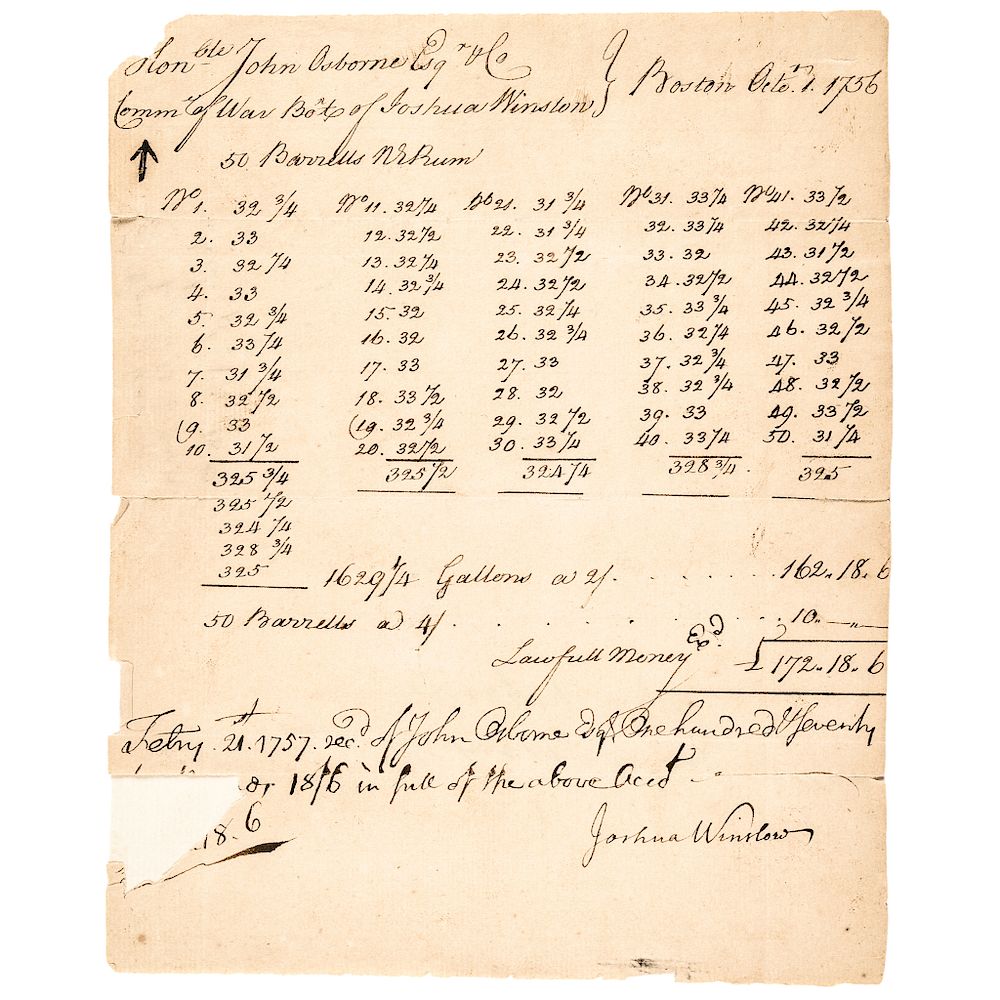 Honble John Osborne Esqr & Co
Commrs of War Bot of Joshua Winslow } Boston Octor. 1. 1756
50 Barrells N E Rum
No 1. 32 3/4 No 11. 32 1/4 No 21. 31 3/4 No 31. 33 1/4 No 41. 33 1/2
2. 33 12. 32 1/2 22. 31 3/4 32. 33 1/4 42. 32 1/4
3. 32 1/4 13. 32 1/4 23. 32 1/2 33. 32 43. 31 1/2
4. 33 14. 32 3/4 24. 32 1/2 34. 32 1/2 44. 32 1/2
5. 32 3/4 15. 32 25. 32 1/4 35. 33 3/4 45. 32 3/4
6. 33 1/4 16. 32 26. 32 3/4 36. 32 1/4 46. 32 1/2
7. 31 3/4 17. 33 27. 33 37. 32 3/4 47. 33
8. 32 1/2 18. 33 1/2 28. 32 38. 32 3/4 48. 32 1/2
9. 33 19. 32 3/4 29. 32 1/2 39. 33 49. 33 1/2
10. 31 1/2 20. 32 1/2 30. 33 1/4 40. 33 1/4 50. 31 1/4
325 3/4 325 1/2 324 1/4 328 3/4 325
325 1/2
324 1/4
328 3/4
325
1629 1/4 Gallons a 2/. 162,, 18,, 6
50 Barrells a 4/ 10,, — ,, —
Lawfull Money £172,, 18,, 6
Febry. 21st. 1757. recd of John Osborne Esqr One hundred & Seventy
or 18/6 in full of the above Acct
18. 6
Joshua Winslow